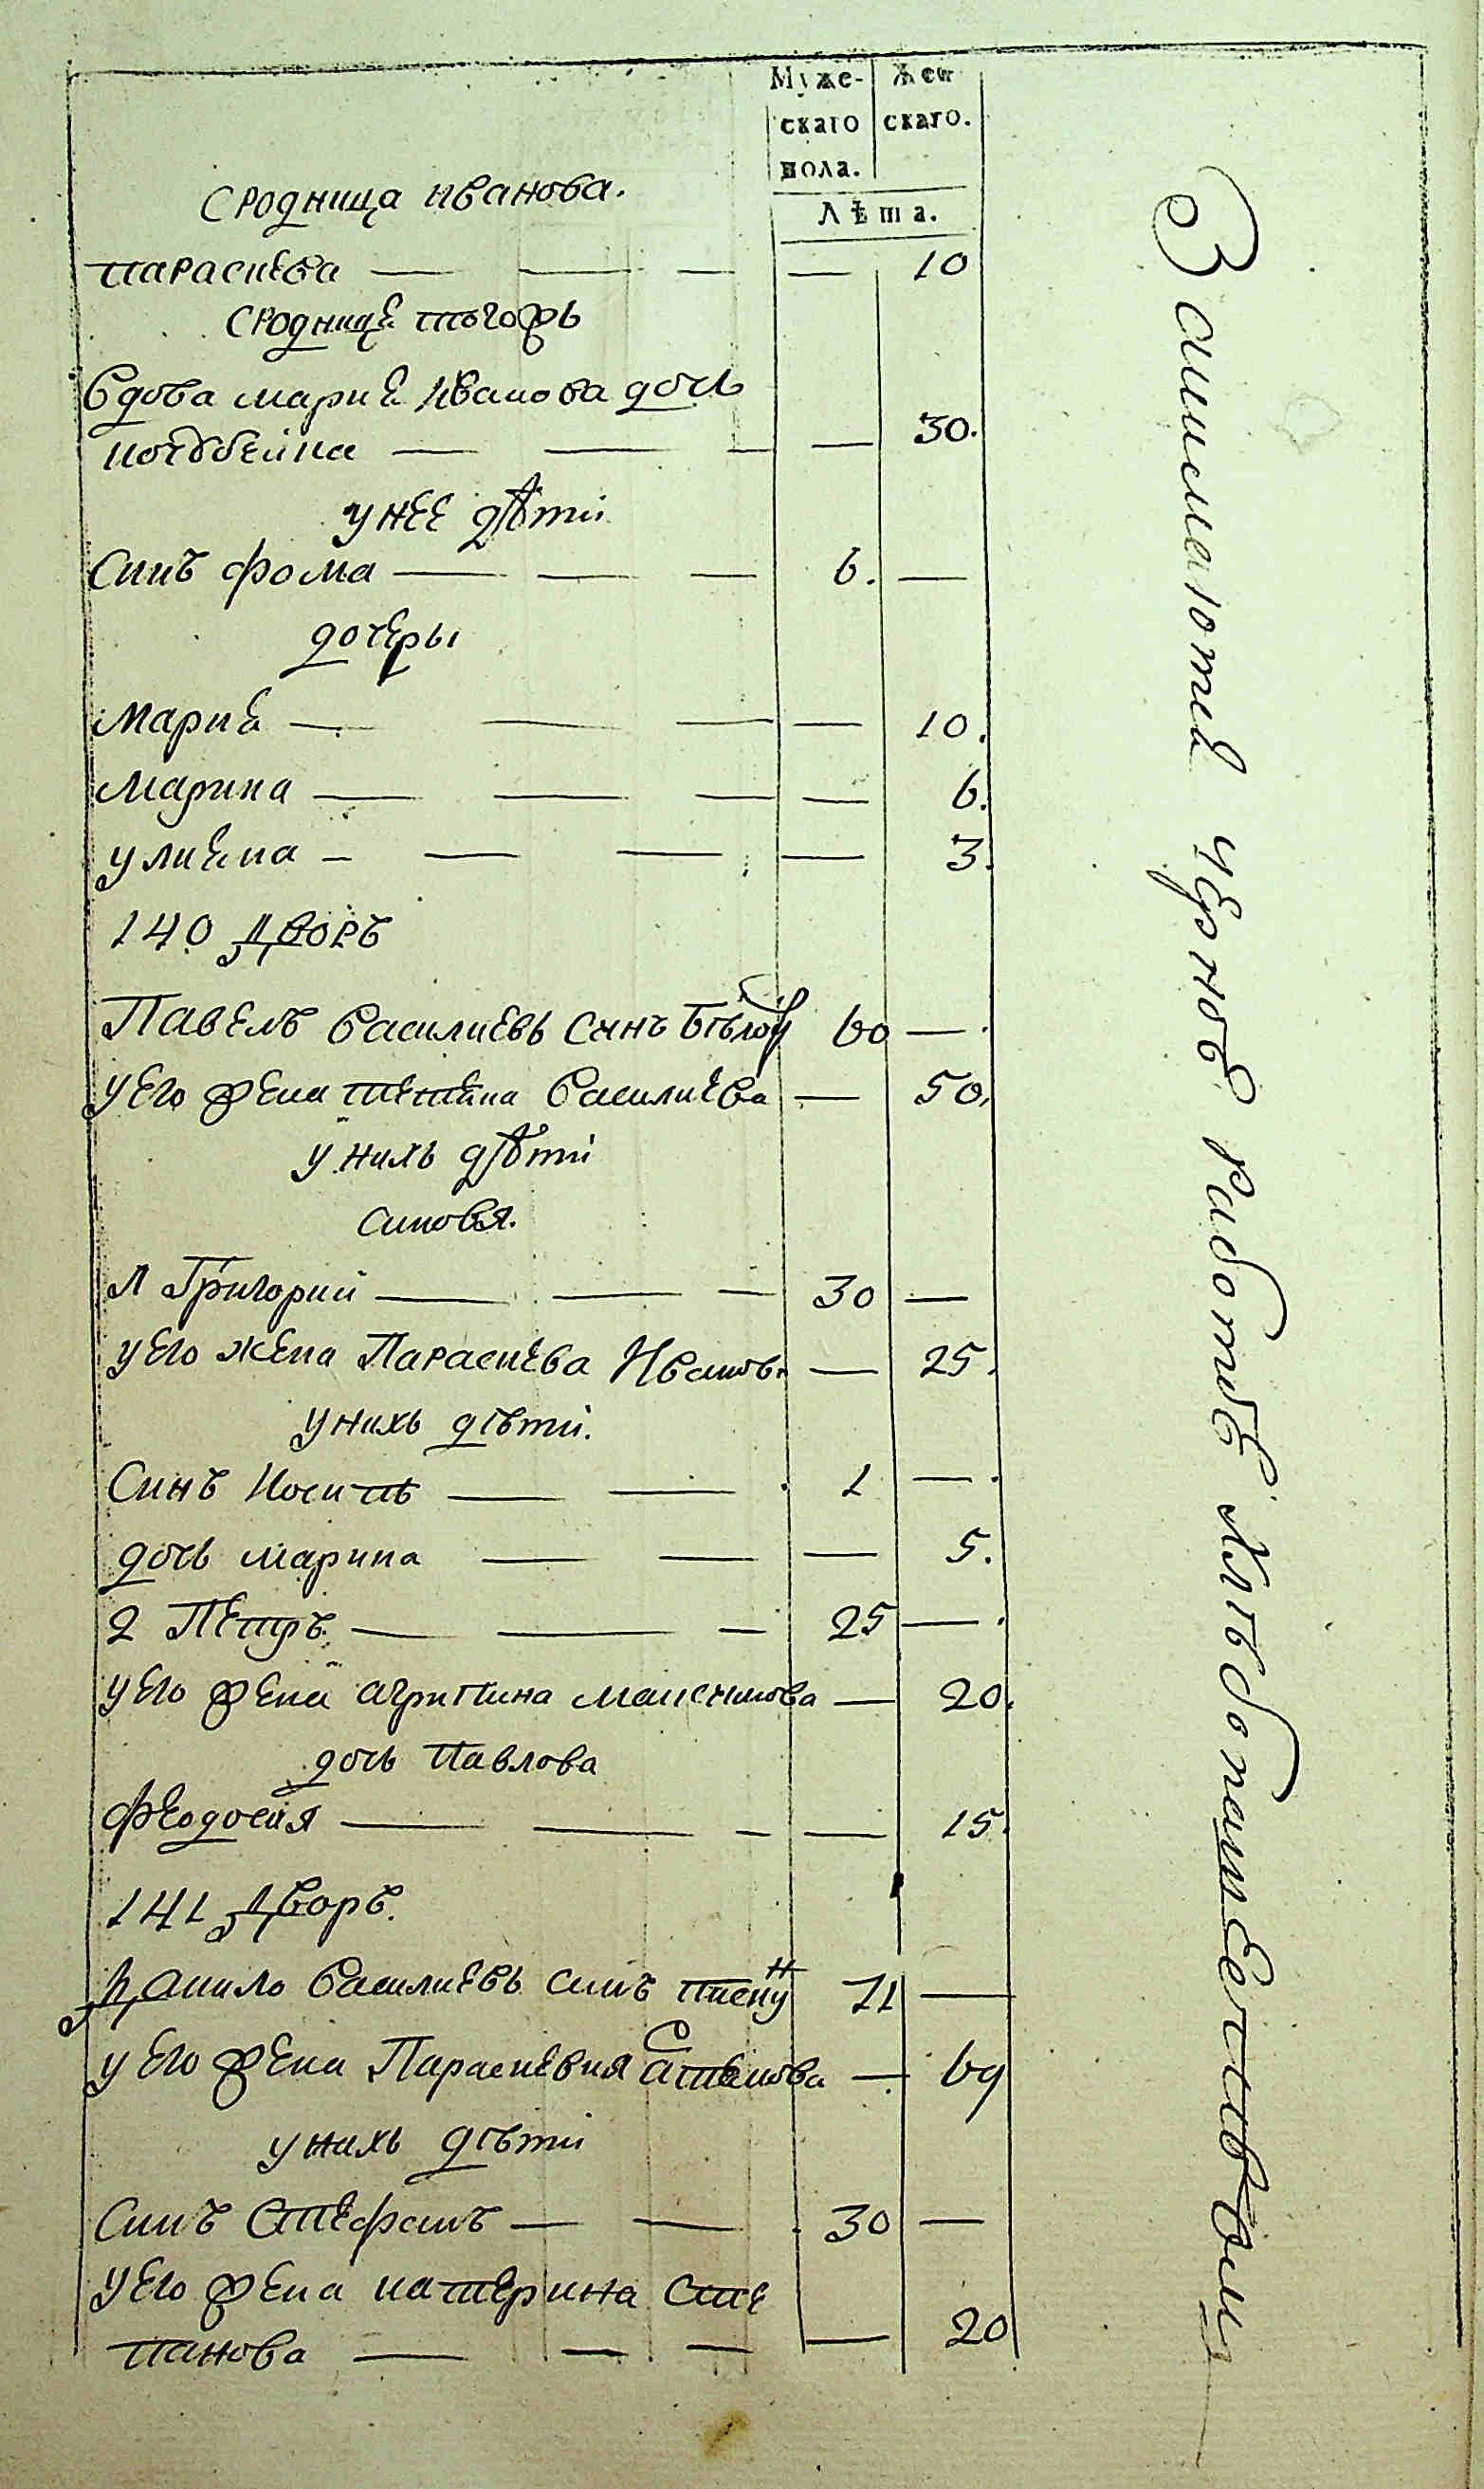 Муже-
скаго
пола.
Жен
скаго.
Лѣта.
Сродница иванова.
параскева — — — — 10
Сродница тогожъ
Вдова мария Иванова дочь
— — — — 30.
у нее дѣти
Синъ фома — — — 6. —
дочеры
Мария — — — — 10.
Марина — — — — 6.
улияна — — — — 3.
140 Дворъ
Павелъ Василиевъ Синъ Бѣлоу 60 —
у его жена татияна Василиева — 50.
у нихъ дѣти
Синовя.
1 Григорий — — — 30 —
у его жена Параскева Иванов. — 25.
у нихъ дѣти.
Синъ Иосипъ — — 1 —
дочь марина — — — 5.
2 Петръ — — — 25 —
у его жена агрипина максимова — 20.
дочь Павлова
Феодосия — — — — 15.
141 Дворъ.
Данило Василиевъ синъ 71 —
у его жена Параскевия Степанова — 69
у нихъ дѣти
Синъ Стефанъ — — 30 —
у его жена катерина Сте
панова — — — — 20
Занимаются черною работою хлѣбопашествомъ